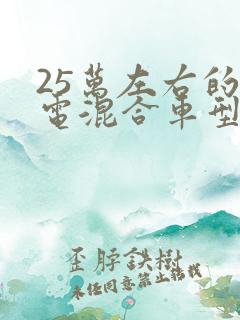 25萬左右的
電混合車型
歪脖鉄樹
未经同意禁止转载